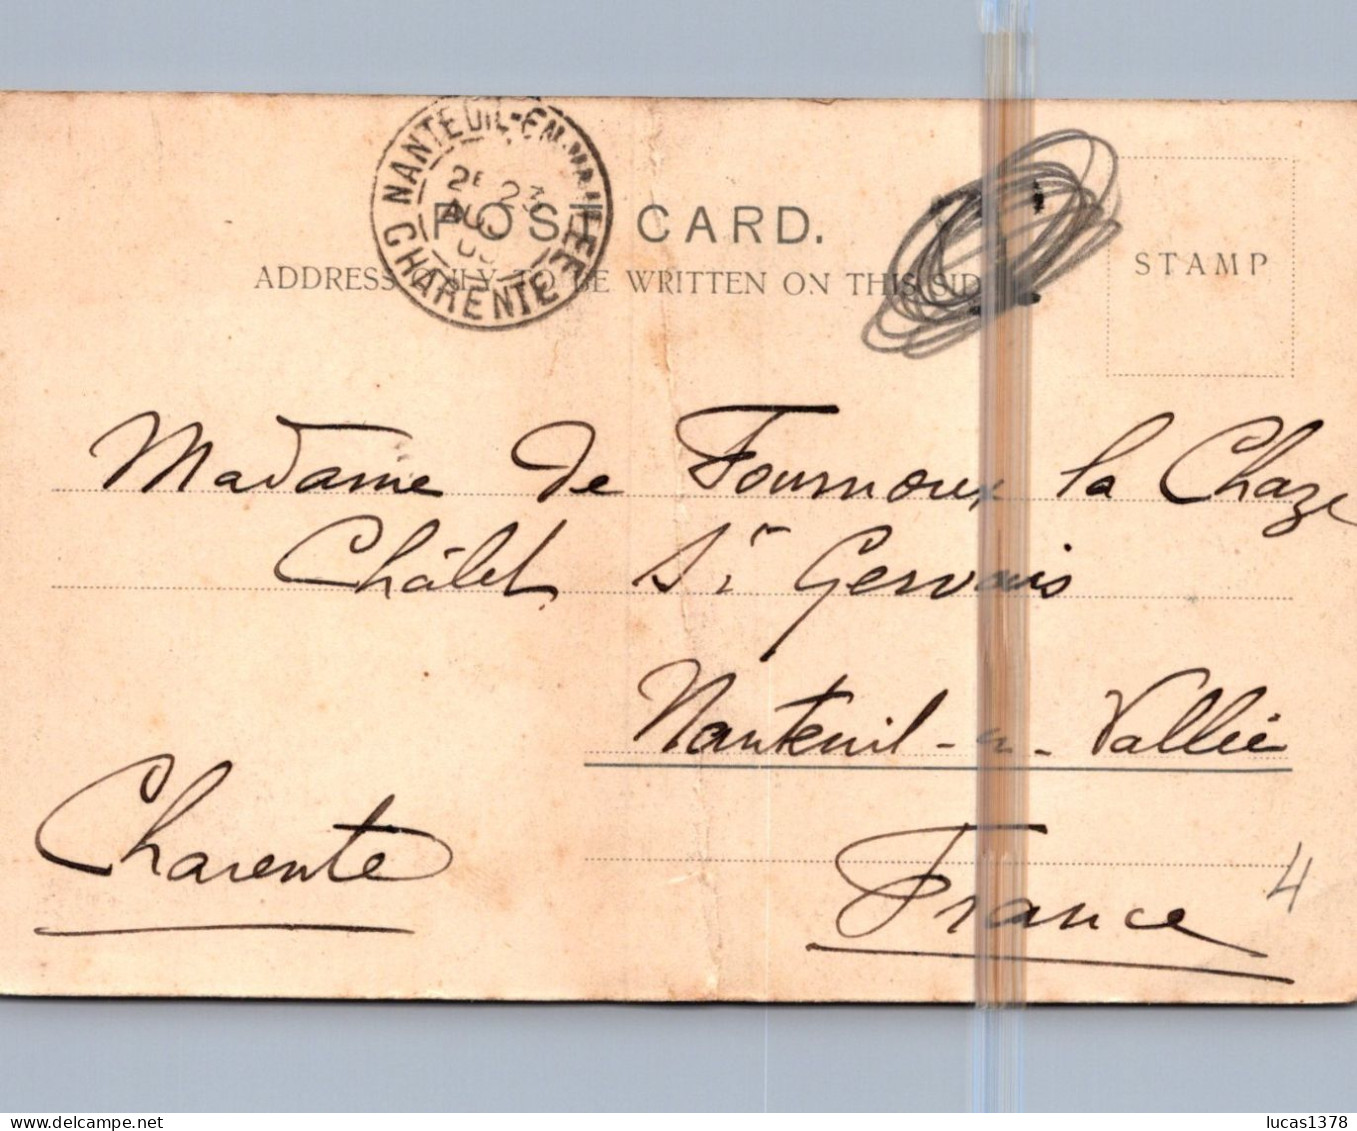 NANTEUIL-EN-VALLÉE
2E 23
AOU
CHARENTE
POST CARD.
ADDRESS ONLY TO BE WRITTEN ON THIS SIDE
STAMP
Madame de Fournoux la Chaze
Châlet St Gervais
Nanteuil-en-Vallée
Charente
France
4
lucas1378